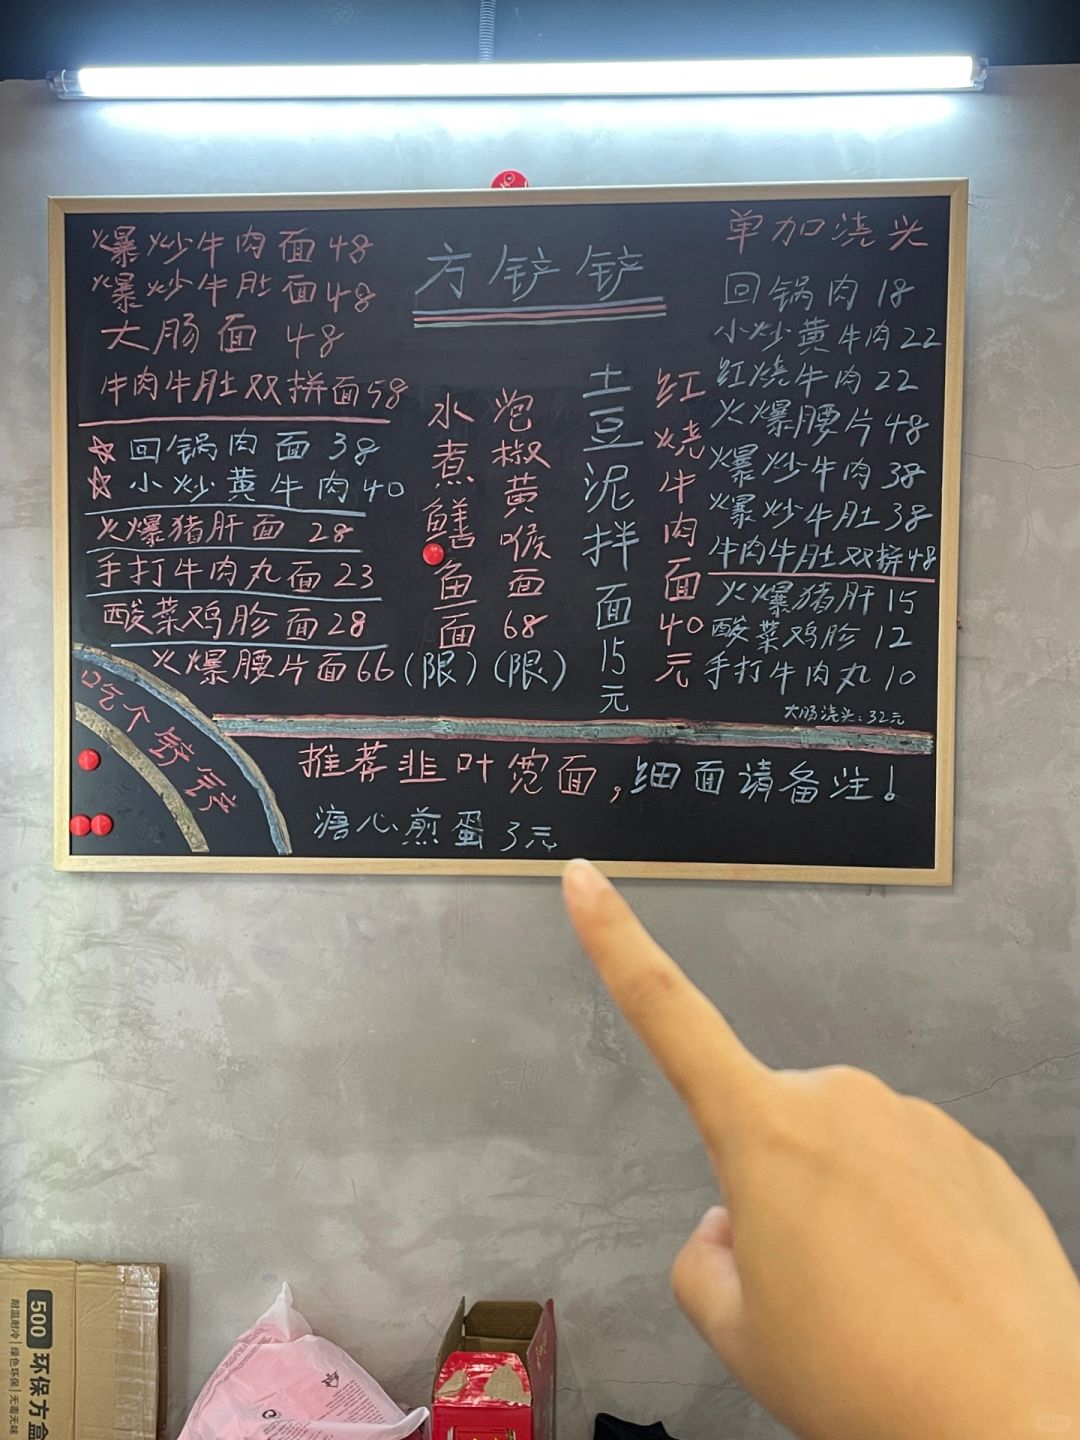 爆炒牛肉面48
爆炒牛肚面48
大肠面 48
牛肉牛肚双拼面58
☆回锅肉面38
☆小炒黄牛肉40
火爆猪肝面 28
手打牛肉丸面23
酸菜鸡胗面28
火爆腰片面66(限)
方铲铲
水煮鳝鱼面
炮椒黄喉面68(限)
土豆泥拌面15元
红烧牛肉面40元
单加浇头
回锅肉18
小炒黄牛肉22
红烧牛肉22
火爆腰片48
爆炒牛肉38
爆炒牛肚38
牛肉牛肚双拼48
火爆猪肝15
酸菜鸡胗12
手打牛肉丸10
大肠浇头:32元
口乞个铲铲
推荐韭叶宽面,细面请备注!
溏心煎蛋3元
500环保方盒
耐温耐冷|绿色环保|无毒无味